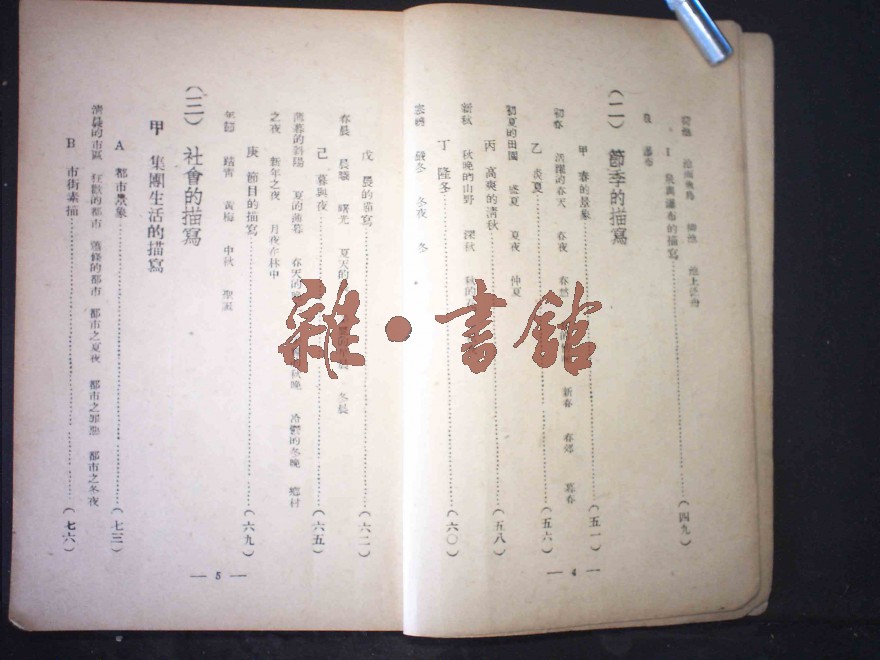 荷池 池面無鳥 池上
I 泉與瀑布的描寫……(四九)
泉 瀑布
(二) 節季的描寫
甲 春的景象……(五一)
初春 春天 春夜 春 新春 春郊 暮春
乙 炎夏……(五六)
初夏的田園 盛夏 夏夜 仲夏
丙 高爽的清秋……(五八)
新秋 秋晚的山野 深秋 秋的
丁 隆冬……(六〇)
嚴冬 冬夜 冬
— 4 —
戊 晨的描寫……(六二)
春晨 晨曦 曙光 夏天的 冬晨
己 暮與夜……(六五)
薄暮的斜陽 夏的薄暮 春天的 秋晚 冷鬱的冬晚 鄉村
之夜 新年之夜 月夜在林中
庚 節目的描寫……(六九)
年節 踏青 黃梅 中秋 聖誕
(三) 社會的描寫
甲 集團生活的描寫
A 都市景象……(七三)
清晨的市區 狂歡的都市 蕭條的都市 都市之夏夜 都市之罪惡 都市之冬夜
B 市街素描……(七六)
— 5 —
雜·書館